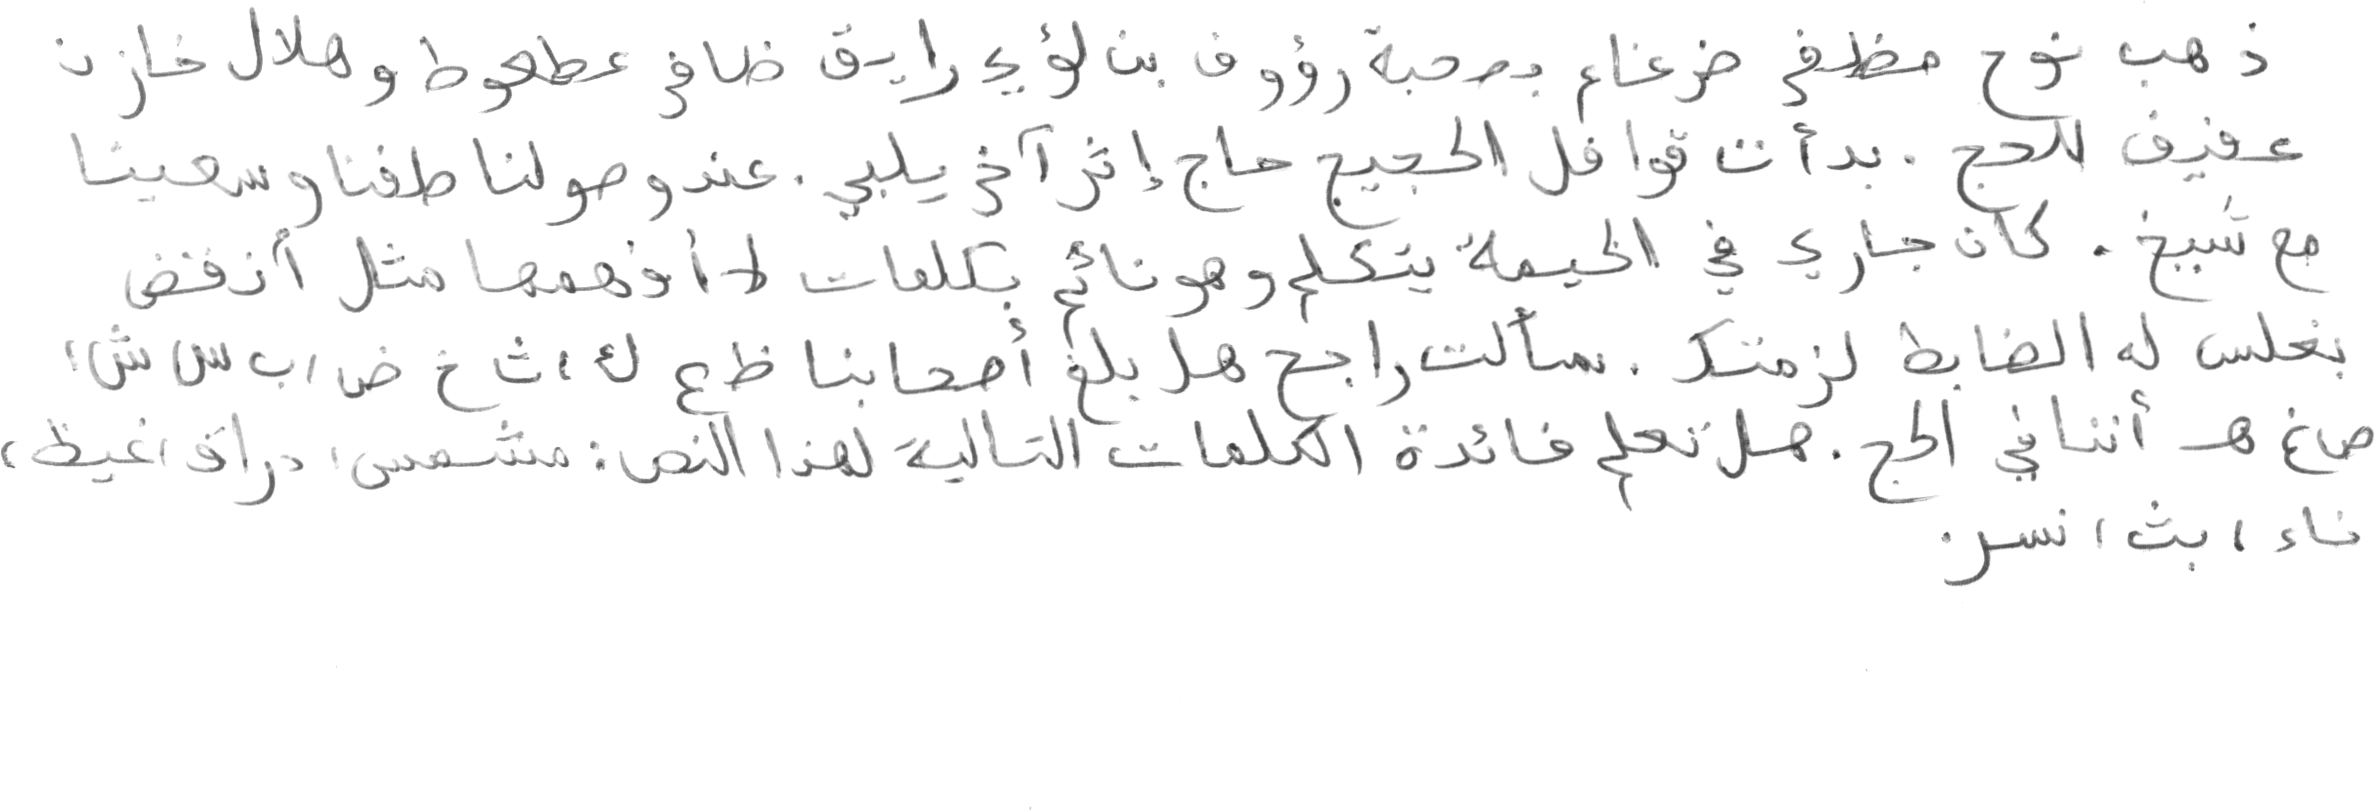 ذهب نوح مظفر ضرغام بصحبة رؤوف بن لؤي رايق ظافر عطعوط وهلال خازن
عفيف للحج . بدأت قوافل الحجيج حاج إثر آخر يلبي . عند وصولنا طفنا وسعينا
مع شيخ . كان جاري في الخيمة يتكلم وهو نائم بكلمات لا أفهمها مثل أنفض
بغلس له الضابط لزمتك . سألت راجح هل بلغ أصحابنا ظ ع ك ، ث خ ض ، ب س ش ،
ص غ هـ أننا في الحج . هل تعلم فائدة الكلمات التالية لهذا النص : مشمس ، دراق ، غيظ ،
ناء ، بث ، نسر .